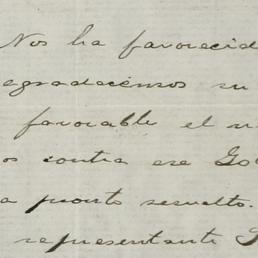 Nos ha favorecid
agradecemos su
favorable el
os contra ese Go
a pronto resuelto.
representante